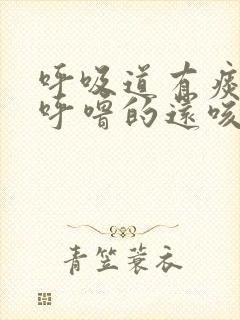 呼吸道有痰
呼噜的还咳
青笠蓑衣